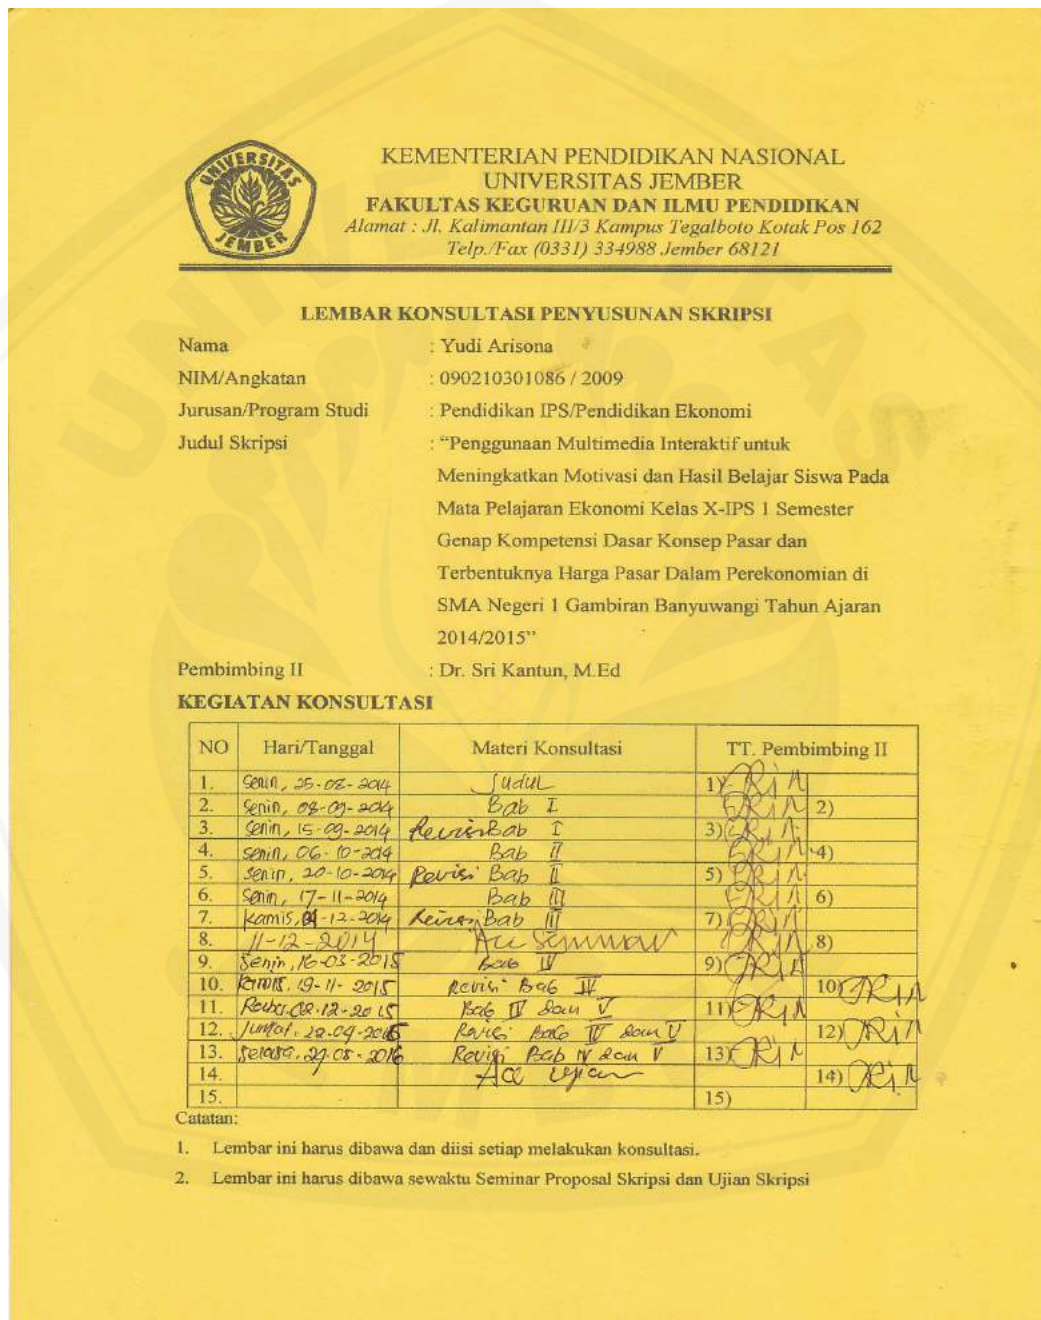 UNIVERSITAS JEMBER
KEMENTERIAN PENDIDIKAN NASIONAL
UNIVERSITAS JEMBER
FAKULTAS KEGURUAN DAN ILMU PENDIDIKAN
Alamat : Jl. Kalimantan III/3 Kampus Tegalboto Kotak Pos 162
Telp./Fax (0331) 334988 Jember 68121
LEMBAR KONSULTASI PENYUSUNAN SKRIPSI
Nama : Yudi Arisona
NIM/Angkatan : 090210301086 / 2009
Jurusan/Program Studi : Pendidikan IPS/Pendidikan Ekonomi
Judul Skripsi : “Penggunaan Multimedia Interaktif untuk
Meningkatkan Motivasi dan Hasil Belajar Siswa Pada
Mata Pelajaran Ekonomi Kelas X-IPS 1 Semester
Genap Kompetensi Dasar Konsep Pasar dan
Terbentuknya Harga Pasar Dalam Perekonomian di
SMA Negeri 1 Gambiran Banyuwangi Tahun Ajaran
2014/2015”
Pembimbing II : Dr. Sri Kantun, M.Ed
KEGIATAN KONSULTASI
NO Hari/Tanggal Materi Konsultasi TT. Pembimbing II
1. Senin, 25-08-2014 Judul 1)
2. Senin, 08-09-2014 Bab I 2)
3. Senin, 15-09-2014 Revisi Bab I 3)
4. Senin, 06-10-2014 Bab II 4)
5. Senin, 20-10-2014 Revisi Bab II 5)
6. Senin, 17-11-2014 Bab III 6)
7. Kamis, -12-2014 Revisi Bab III 7)
8. 11-12-2014 Acc Seminar 8)
9. Senin, 16-03-2015 Bab IV 9)
10. Kamis, 19-11-2015 Revisi Bab IV 10)
11. Rabu, 02-12-2015 Bab IV dan V 11)
12. Jumat, 22-04-2016 Revisi Bab IV dan V 12)
13. Selasa, -05-2016 Revisi Bab IV dan V 13)
14. Acc Ujian 14)
15. 15)
Catatan:
1. Lembar ini harus dibawa dan diisi setiap melakukan konsultasi.
2. Lembar ini harus dibawa sewaktu Seminar Proposal Skripsi dan Ujian Skripsi